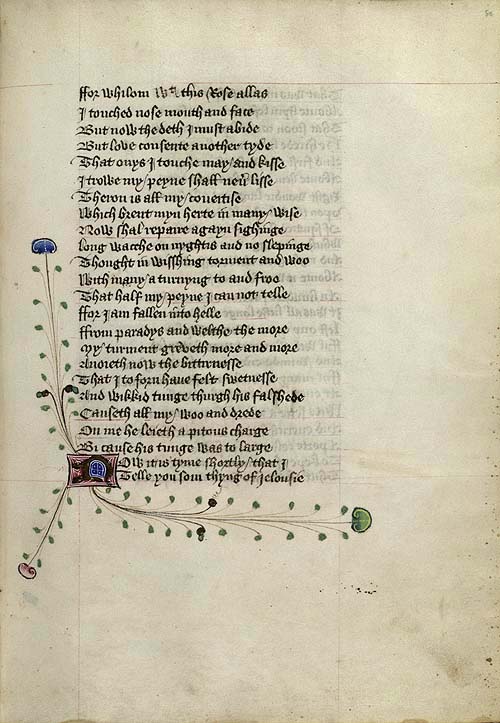 ffor whilom wt this Rose allas
I touched nose mouth and face
But now the deth I must abide
But love consente another tyde
That onys I touche may and kisse
I trowe my peyne shall neu̓ lisse
Theron is all my coueitise
Which brent myn herte in many wise
Now shal repaire agayn sighinge
long wacche on nyghtis and no slepinge
Thought in wisshing torment and woo
With many a turnyng to and froo
That half my peyne I can not telle
ffor I am fallen into helle
ffrom paradys and welthe the more
My turment greveth more and more
Anoieth now the bittirnesse
That I toforn haue felt swetnesse
And wikkid tunge thurgh his falshede
Causeth all my woo and drede
On me he leieth a pitous charge
Bi cause his tunge was to large
Now it is tyme shortly that I
Telle you som thyng of Ielousie